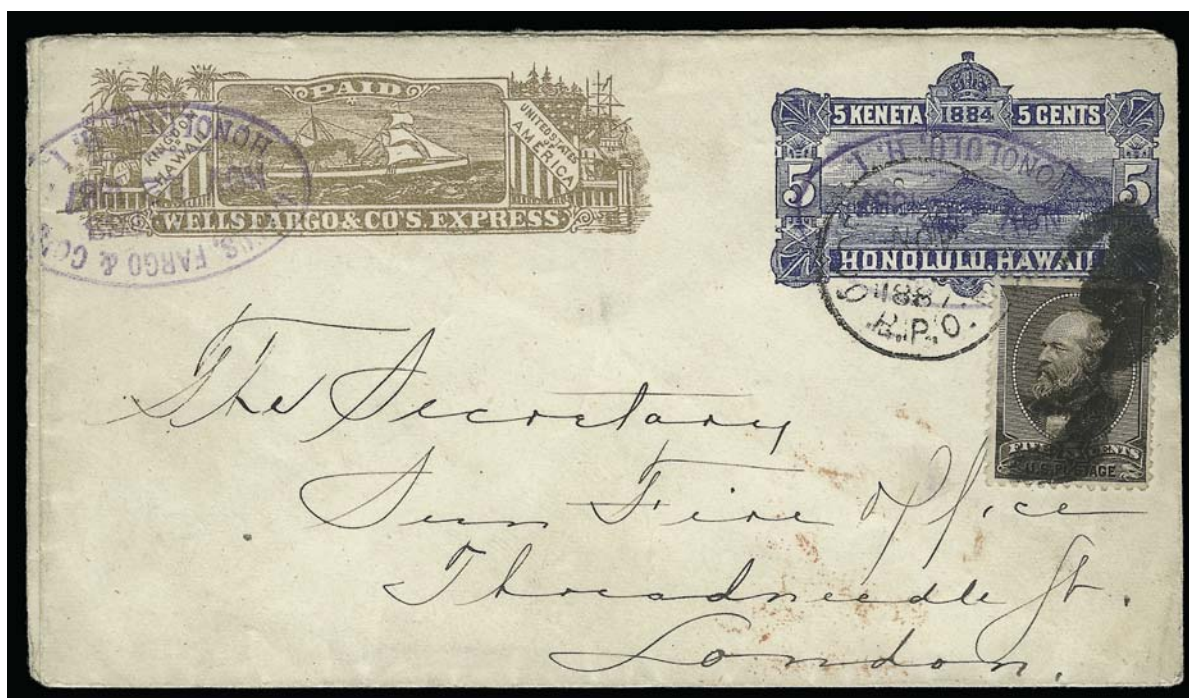 PAID
KINGDOM OF HAWAII
UNITED STATES OF AMERICA
WELLS FARGO & CO'S. EXPRESS
FARGO & CO
HONOLULU
5 KENETA 1884 5 CENTS
HONOLULU, H. I.
5 5
NOV
HONOLULU, HAWAII
188
R.P.O.
FIVE CENTS
U.S. POSTAGE
The Secretary
Sun Fire Office
Threadneedle St.
London.